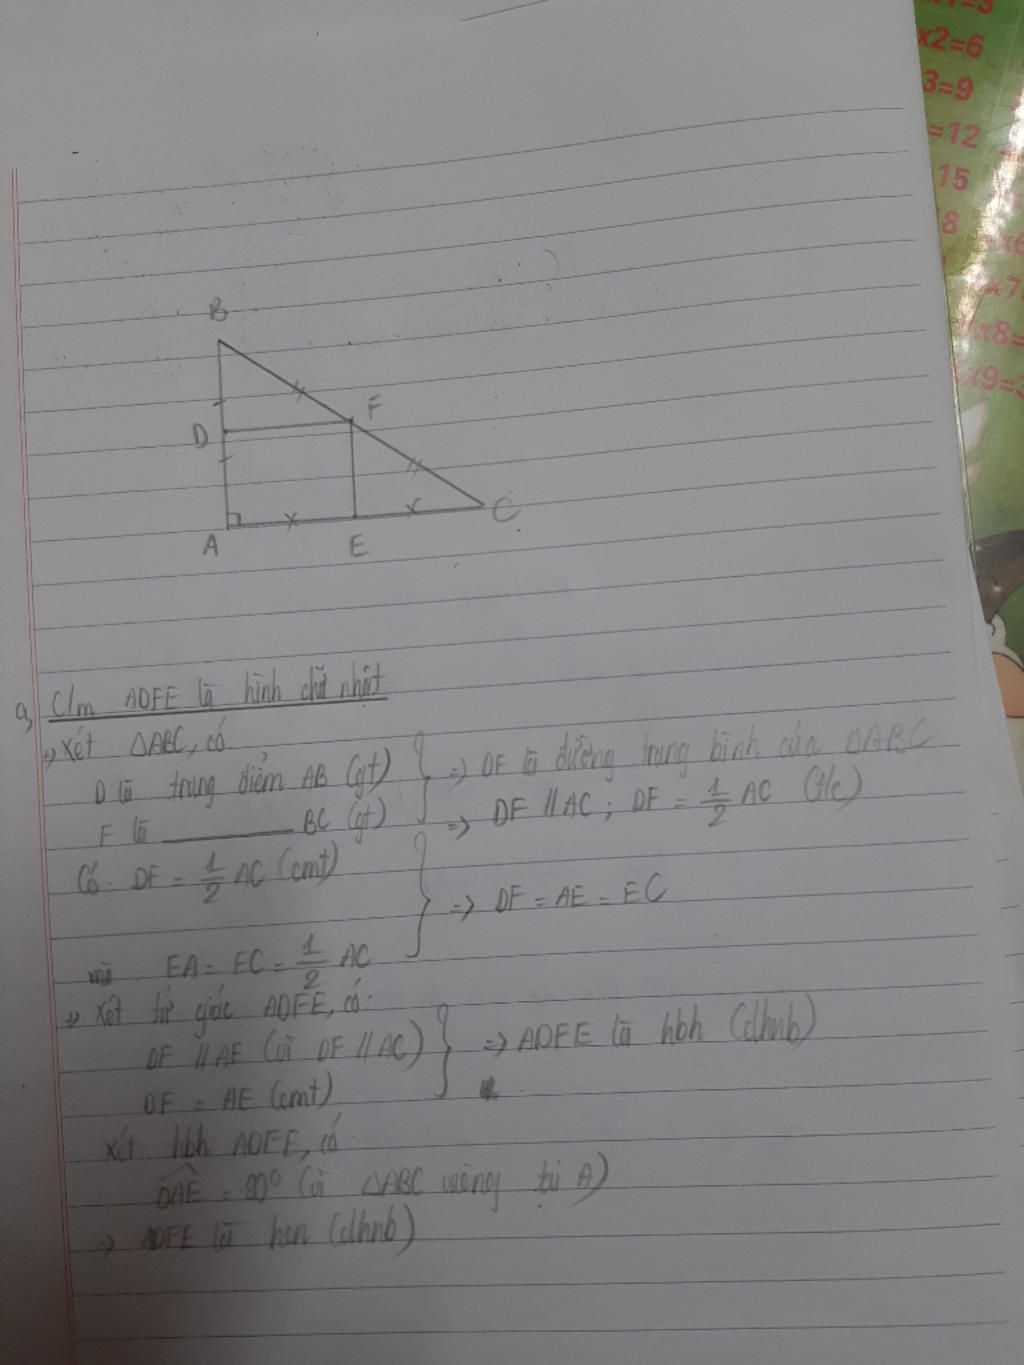 x1=3
x2=6
3=9
=12
15
8
x6
x7
x8=
x9=3
B
D
F
A
E
C
a, C/m ADFE là hình chữ nhật
→ Xét △ABC, có
D là trung điểm AB (gt)
F là ———— BC (gt)
=> DF là đường trung bình của △ABC
=> DF // AC ; DF = 1/2 AC (t/c)
Có: DF = 1/2 AC (cmt)
mà : EA = EC = 1/2 AC
=> DF = AE = EC
→ Xét tứ giác ADFE, có:
DF // AE (vì DF // AC)
DF = AE (cmt)
=> ADFE là hbh (dhnb)
Xét hbh ADFE, có
DAE = 90° (vì △ABC vuông tại A)
=> ADFE là hcn (dhnb)